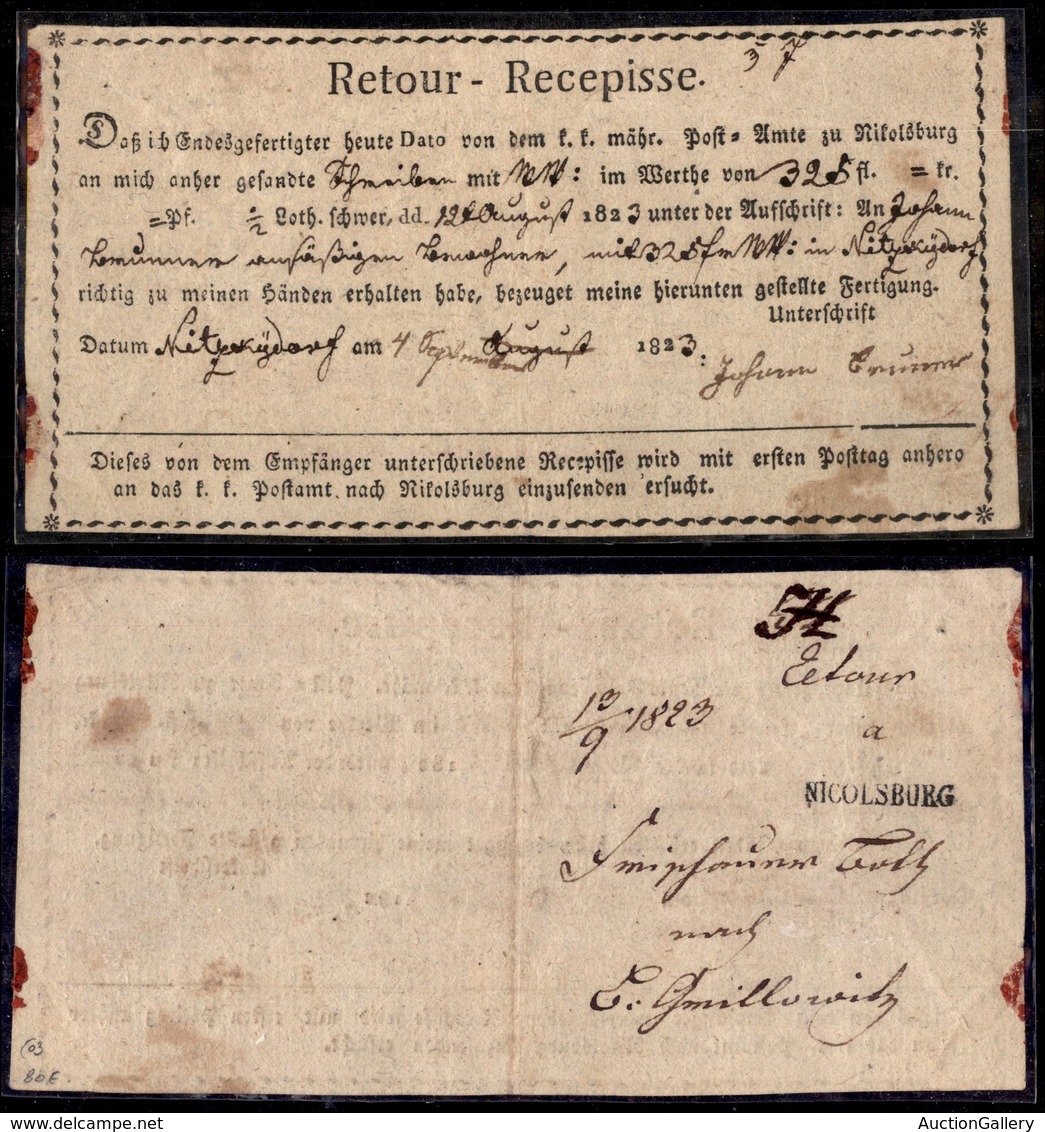 5 7
Retour - Recepisse.
Daß ich Endesgefertigter heute Dato von dem k. k. mähr. Post = Amte zu Nikolsburg
an mich anher gesandte Schreiben mit WW: im Werthe von 325 fl. = kr.
=Pf. ½ Loth. schwer, dd. 12t August 1823 unter der Aufschrift: An Johann
Brunner ansäßigen Bewohner, mit 325 f WW: in Nitzkydorf
richtig zu meinen Händen erhalten habe, bezeuget meine hierunten gestellte Fertigung.
Unterschrift
Datum Nitzkydorf am 4 September August 1823.
Johann Bruner
Dieses von dem Empfänger unterschriebene Recepisse wird mit ersten Posttag anhero
an das k. k. Postamt nach Nikolsburg einzusenden ersucht.
Retour
13/9 1823
a
NICOLSBURG
Frischauer
nach
Gr. Grillowitz
80 E
AuctionGallery